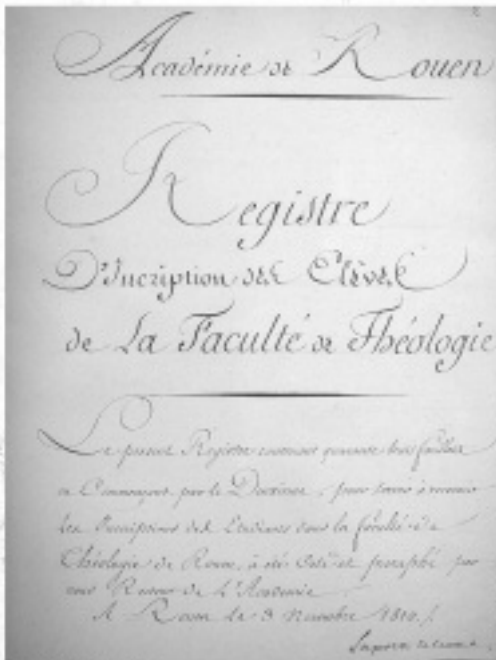 Académie de Rouen
Registre
D'Inscription des Elèves
de La Faculté de Théologie
Le présent Registre contenant quarante trois feuilles
en Commençant par le Deuxième, pour servir à recevoir
les Inscriptions des Etudians dans la faculté de
Théologie de Rouen, à été Coté et paraphé par
nous Recteur de L'Académie
A Rouen le 3 Novembre 1810.